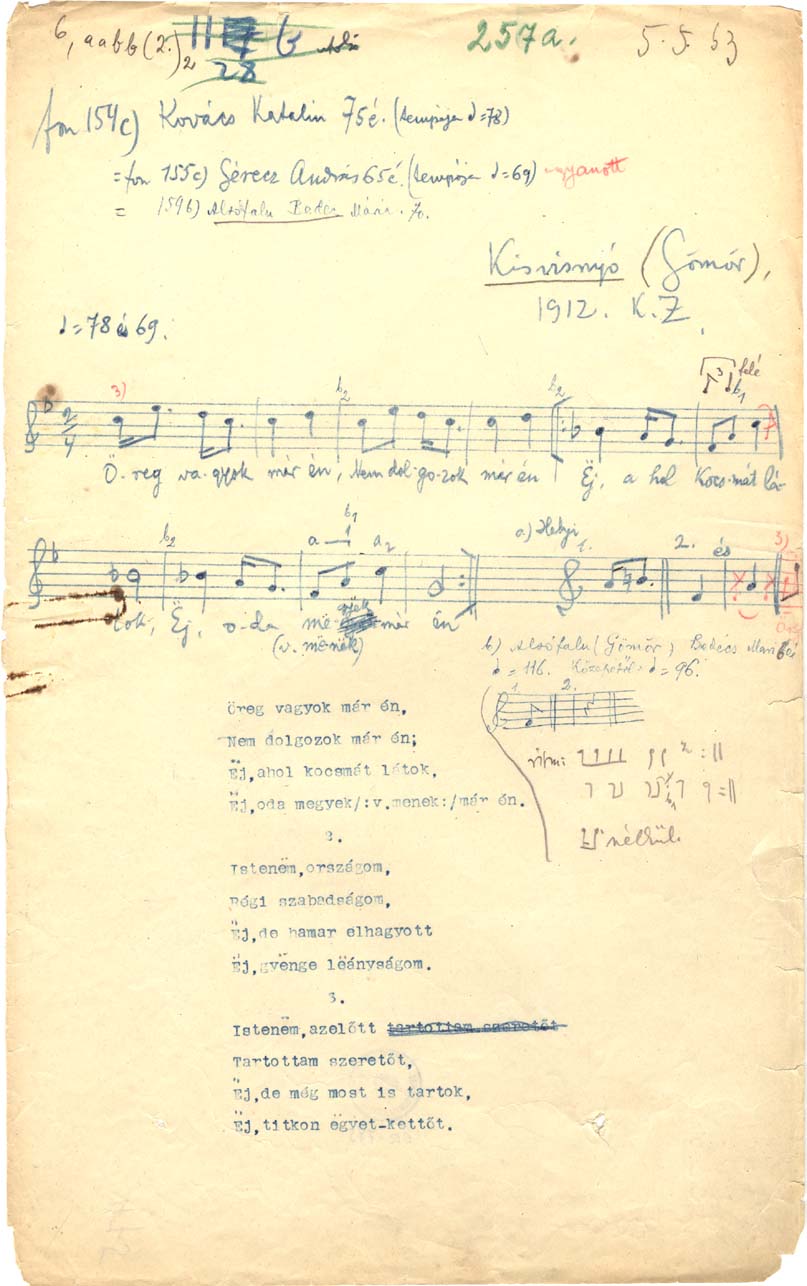 6, aabb(2.)2 11 6 257a. 5. 5. b3
28
fon 154c) Kovács Katalin 75é. (tempója d=78)
=fon 155c) Gérecz András 65é. (tempója d=69) ugyanott
= 159b) Alsófalu Bedec Mári. 70.
Kisvisnyó (Gömör),
1912. K.Z.
d=78 és 69.
3) b2 b2 3 felé b1
2/4
Ö-reg va-gyok már én, Nem dol-go-zok már én Ëj, a hol Kocs-mát lá-
b2 a b1 a2 a) Helyi 1. 2. és 3)
tok, Ëj, o-da më- gyek már én
(v. mënëk)
b) Alsófalu (Gömör) Bedécs Mari
d=116. d=96.
1. 2.
Öreg vagyok már én,
Nem dolgozok már én;
Ëj,ahol kocsmát látok,
Ëj,oda megyek/:v.menek:/már én.
ritm:
nélkül.
2.
Istenëm,országom,
Régi szabadságom,
Ëj,de hamar elhagyott
Ëj,gyënge lëányságom.
3.
Istenëm,azelőtt tartottam szeretőt
Tartottam szeretőt,
Ëj,de még most is tartok,
Ëj,titkon ëgyet-kettőt.